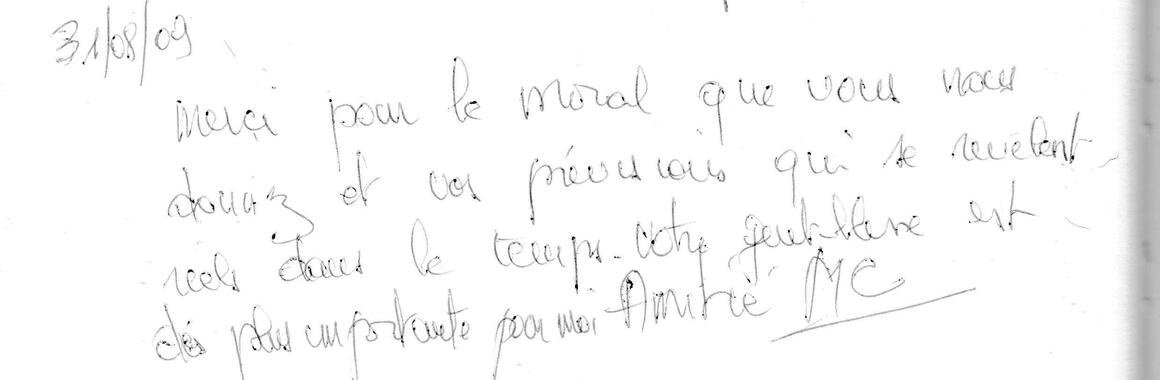 31/08/09
Merci pour le moral que vous nous
donniez et vos prévisions qui se revelent
réels dans le temps. Votre gentillesse est
des plus importante pour moi Amitié MC